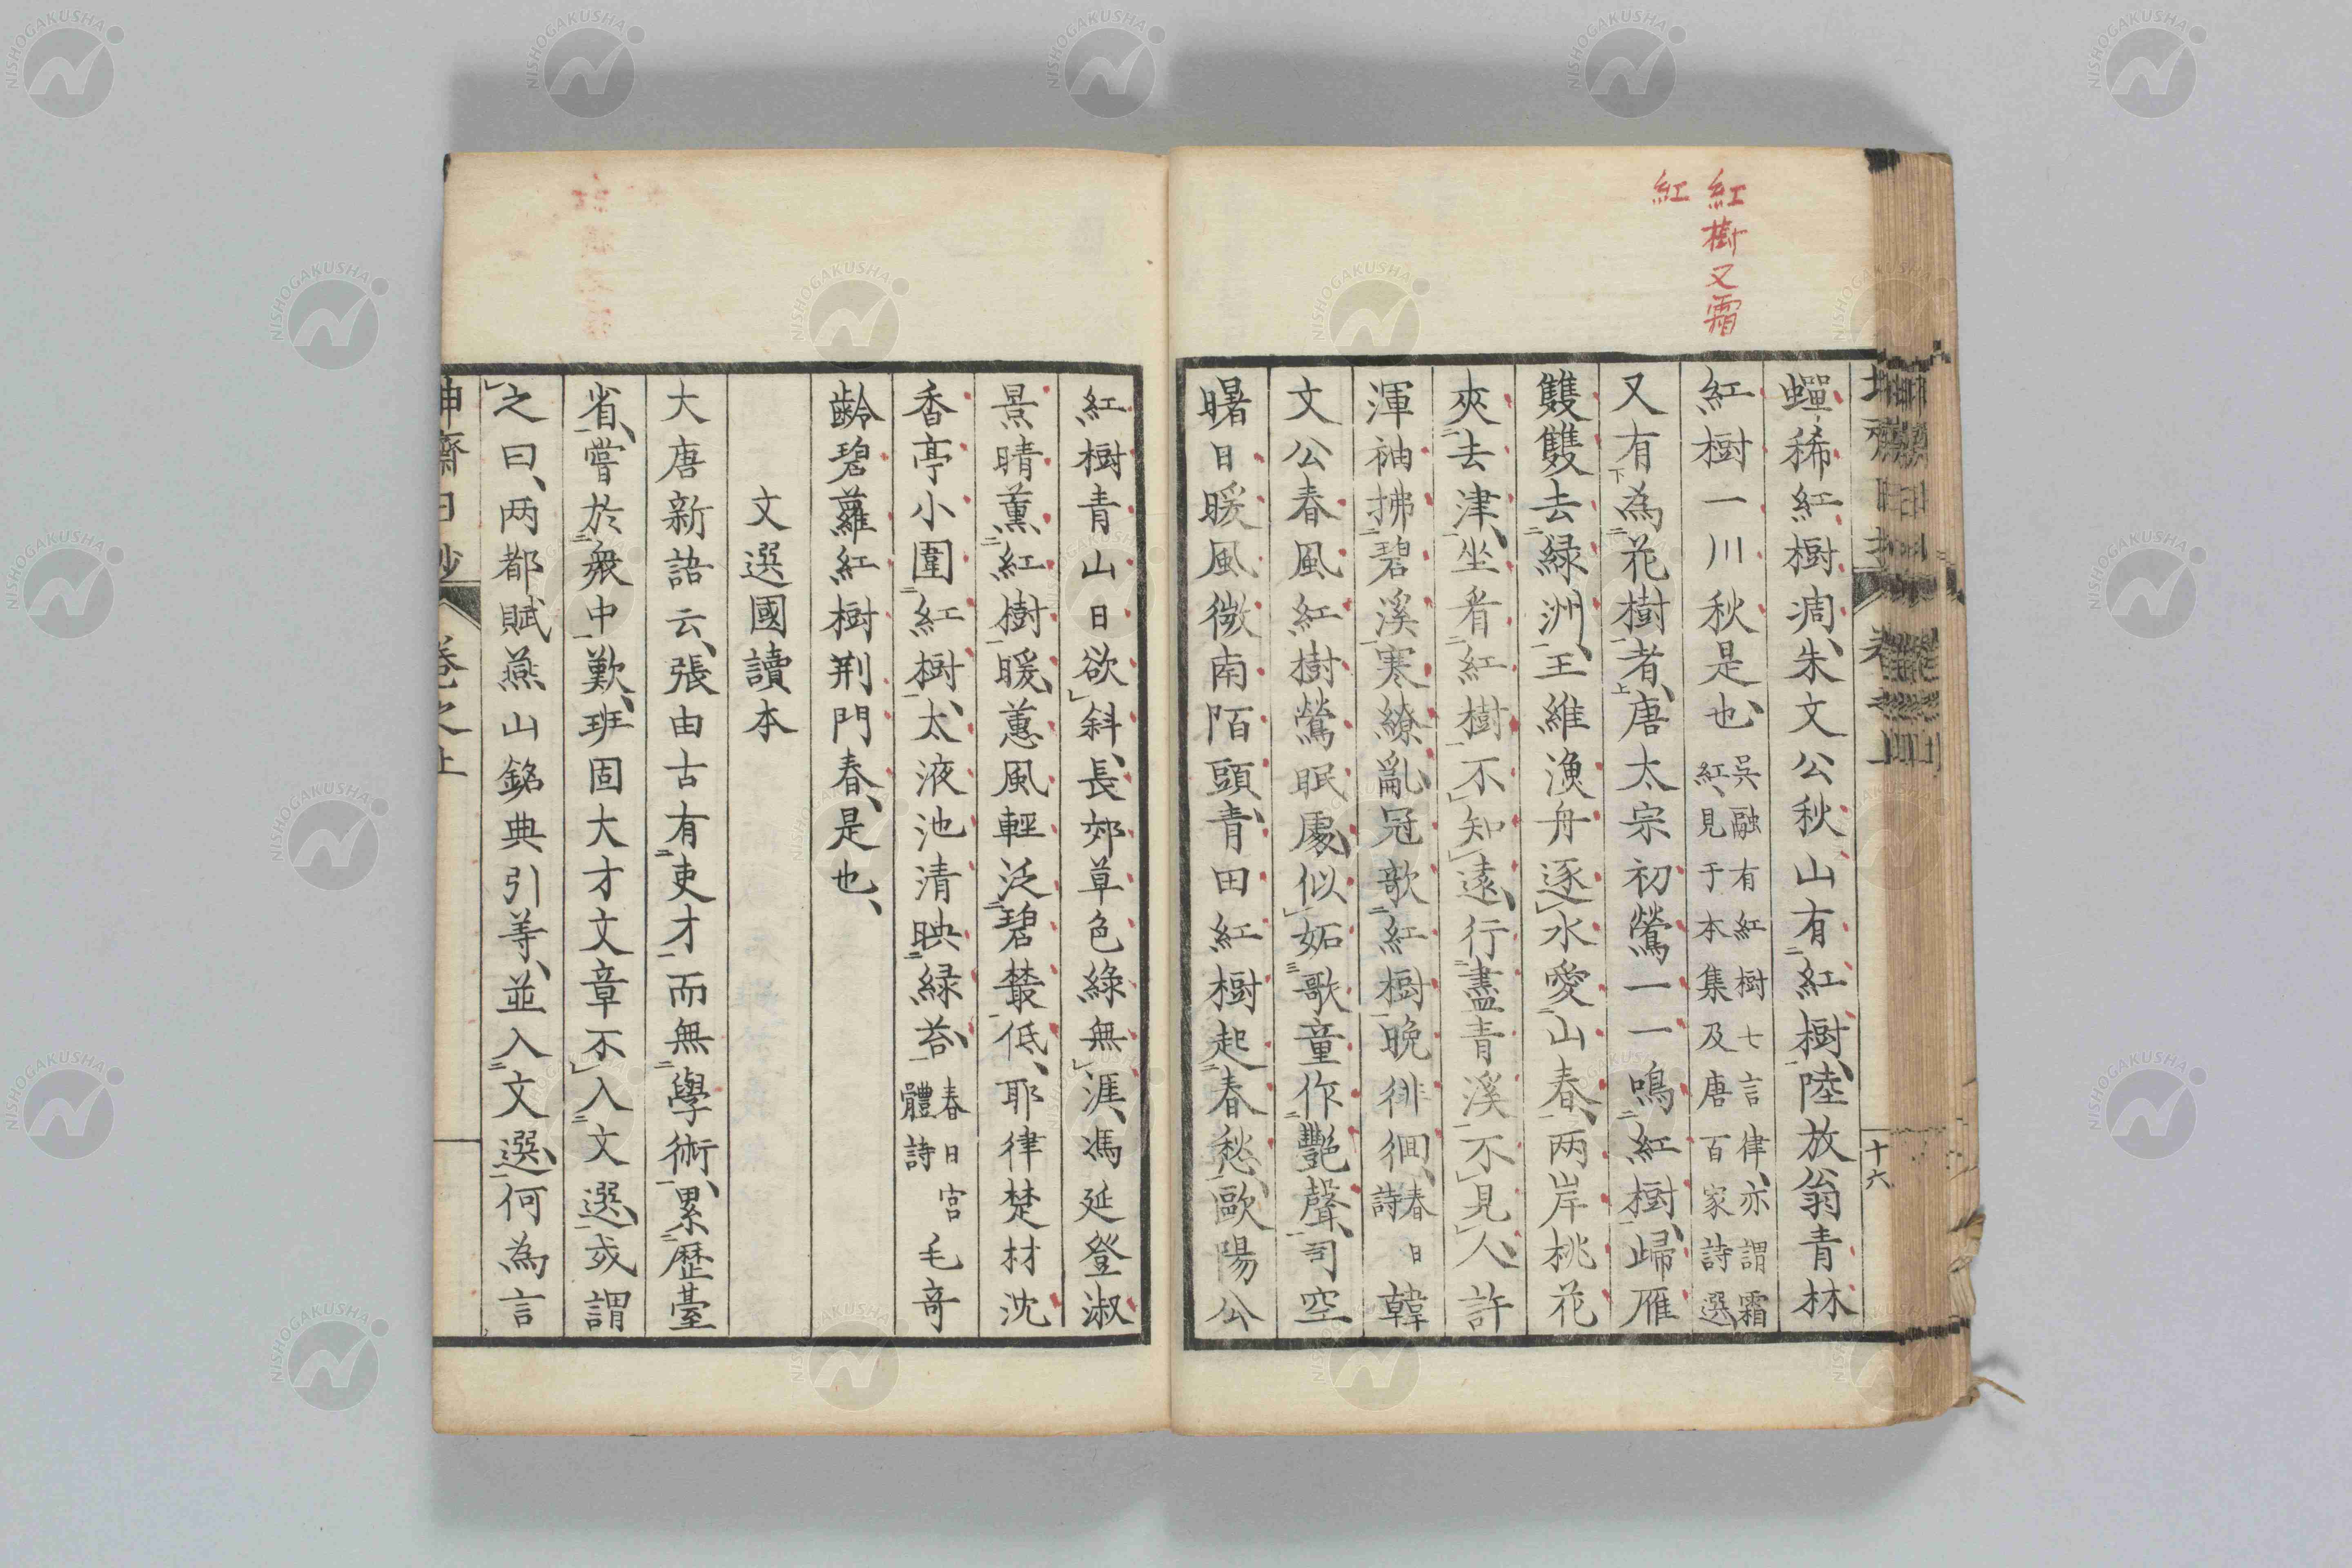 紅樹又霜
紅
蟬稀紅樹凋、朱文公秋山有紅樹、陸放翁青林
紅樹一川秋是也、吳融有紅樹七言律、亦謂霜紅、見于本集及唐百家詩選、
又有為花樹者、唐太宗初鶯一一鳴紅樹、歸雁
雙雙去緑洲、王維漁舟逐水愛山春、两岸桃花
夾去津、坐看紅樹不知遠、行盡青溪不見人、許
渾袖拂碧溪寒繚亂、冠歌紅樹晚徘徊、春日詩韓
文公春風紅樹鶯眠處、似妬歌童作艷聲、司空
曙日暖風微南陌頭、青田紅樹起春愁、歐陽公
十六
紅樹青山日欲斜、長郊草色綠無涯、馮延登淑
景晴薰紅樹暖、蕙風輕泛碧叢低、耶律楚材沈
香亭小圍紅樹、太液池清映緑苔、春日宮體詩毛奇
齡碧蘿紅樹荆門春、是也、
文選國讀本
大唐新語云、張由古有吏才而無學術、累歷臺
省、嘗於衆中歎、班固大才文章不入文選、或謂
之曰、两都賦燕山銘典引等、並入文選、何為言
卷之上
NISHOGAKUSHA